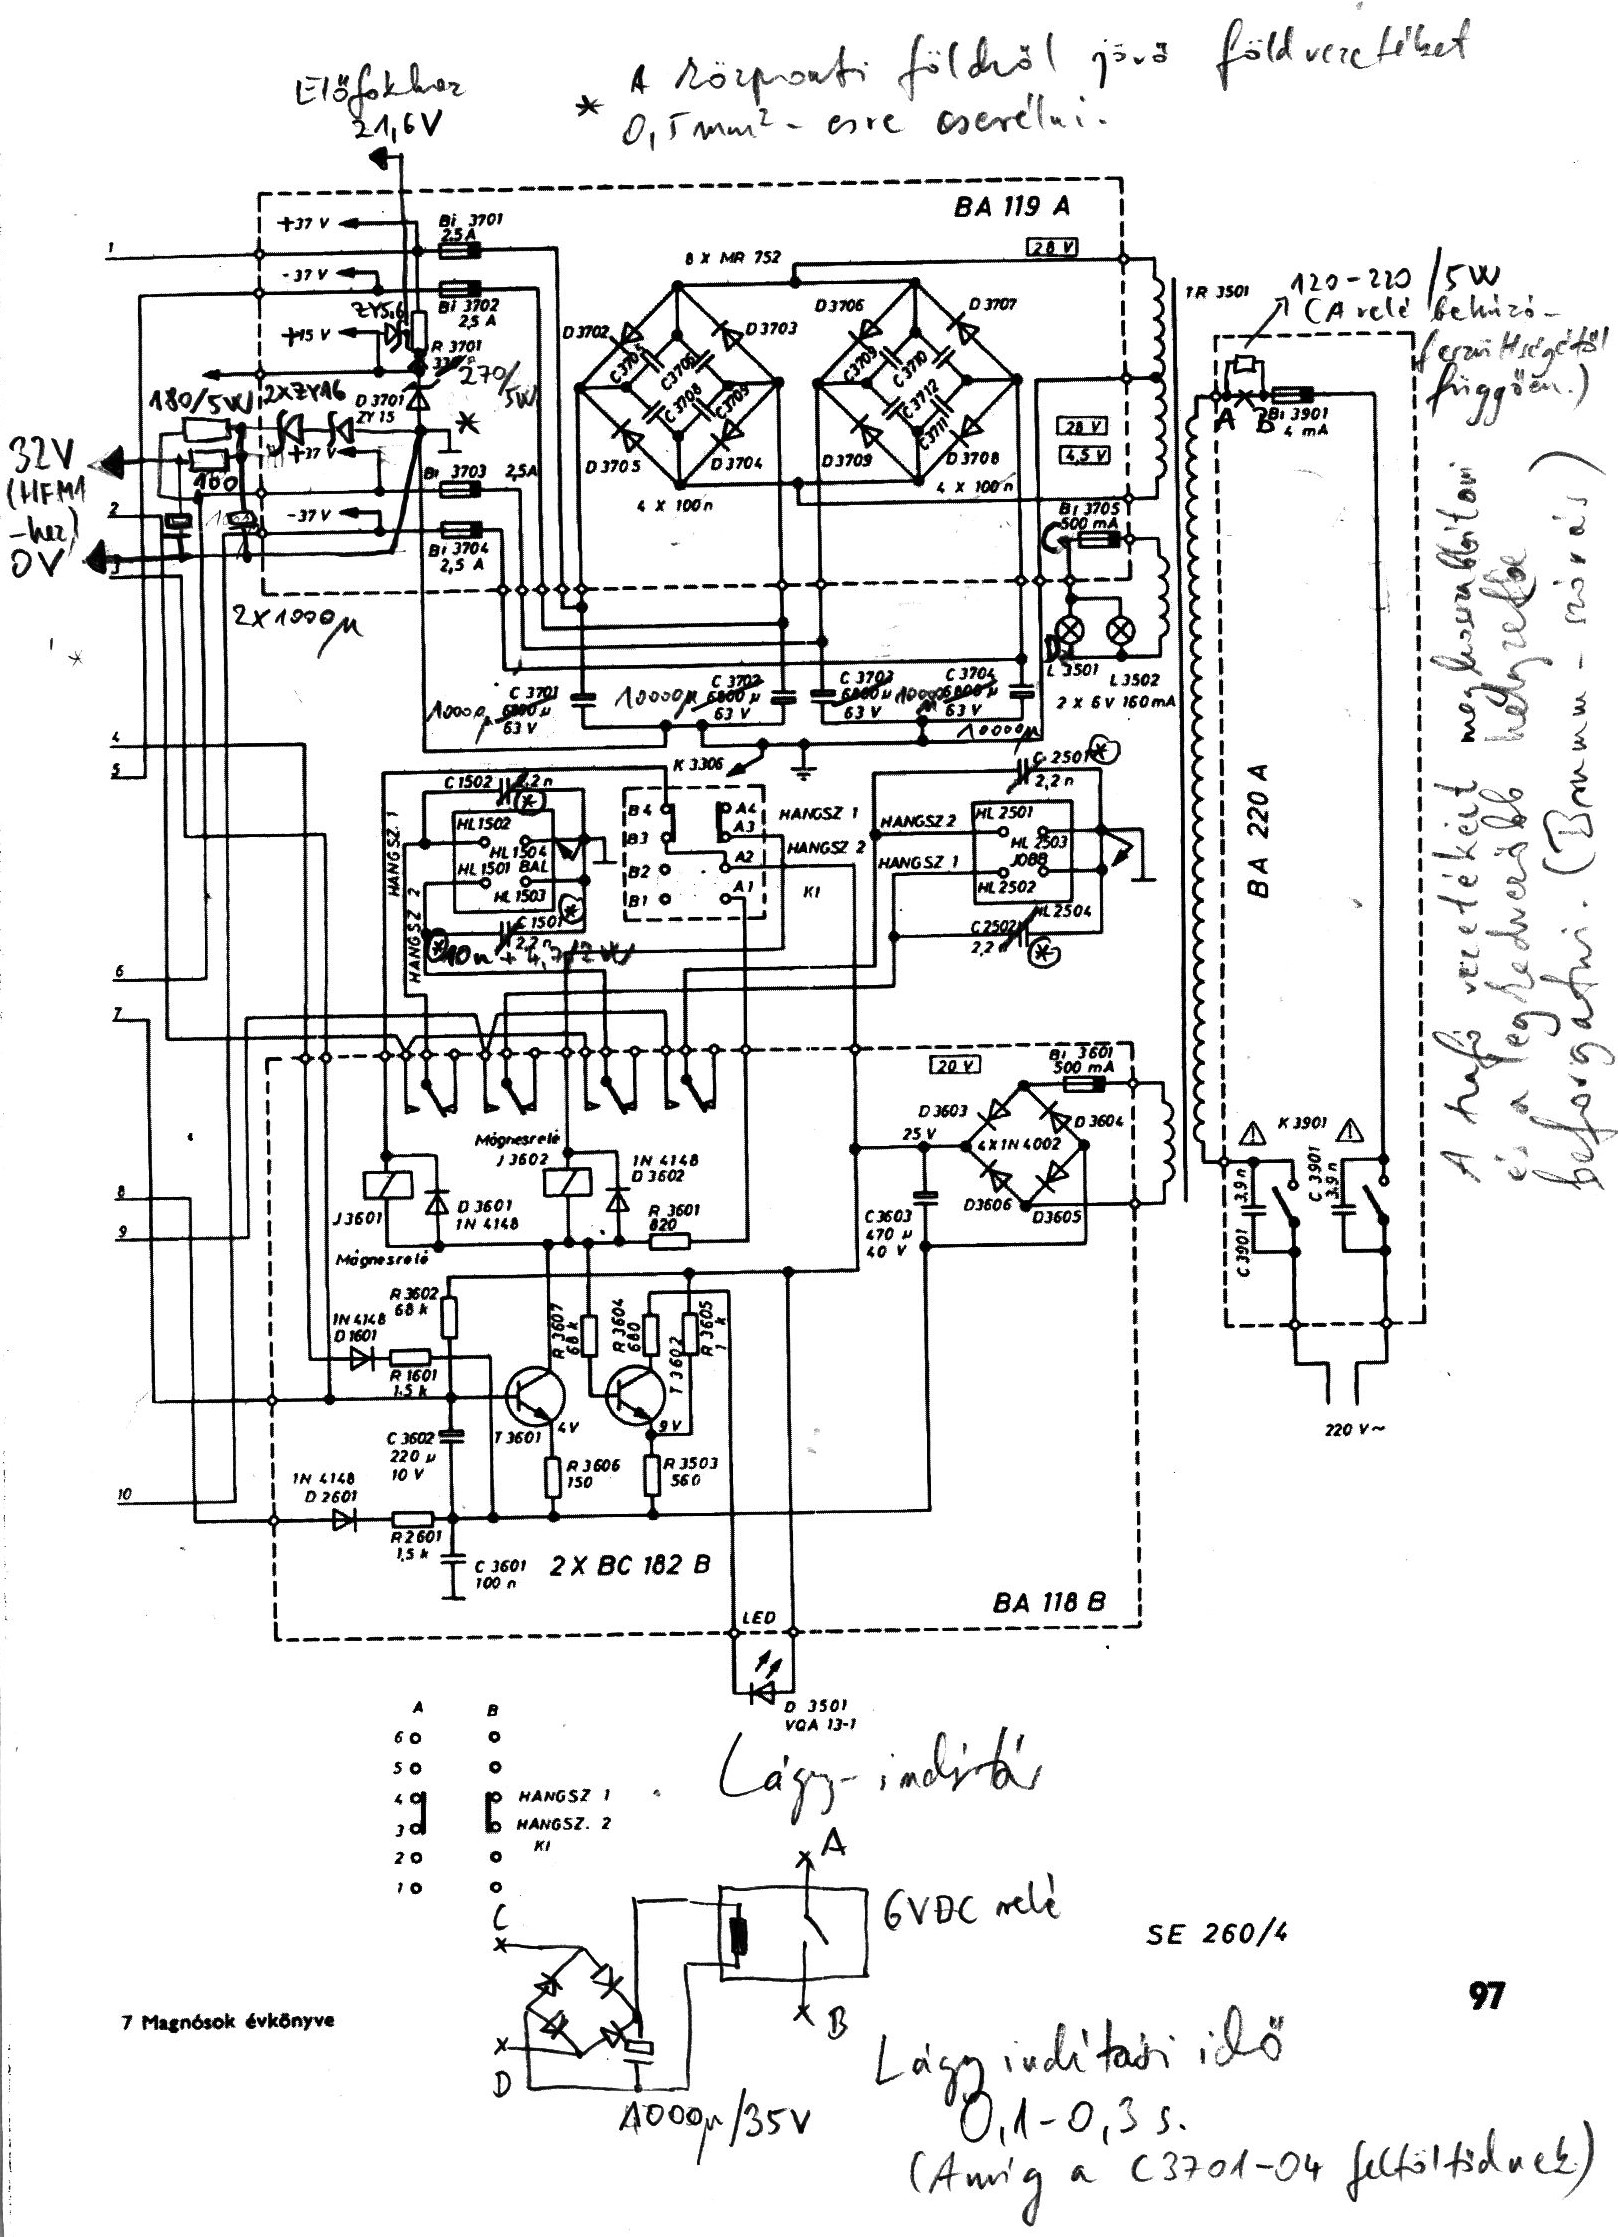 Előfokhoz
21,6V
* A központi földről jövő földvezetéket
0,5 mm² - esre cserélni.
BA 119 A
+37 V
Bi 3701
2,5A
28 V
1
8 X MR 752
- 37 V
Bi 3702
2,5 A
ZY5,6
+15 V
R 3701
270/5W
D 3702
D 3703
D 3706
D 3707
C3705
C3706
C3708
C3709
C3709
C3710
C3712
C3711
TR 3501
120-220/5W
(A relé behúzó-
feszültségétől
függően.)
180/5W
2xZY16
D 3701
ZY 15
*
A
B
Bi 3901
4 mA
28 V
4,5 V
32V
(HFM1
-hez)
0V
+37 V
100
Bi 3703
2,5A
D 3705
D 3704
D 3709
D 3708
4 X 100 n
4 X 100 n
2
- 37 V
Bi 3704
2,5 A
Bi 3705
500 mA
C
3
2X1000µ
D
L 3501
L 3502
2 X 6 V 160 mA
C 3701
6800 µ
63 V
10000µ
C 3702
6800 µ
63 V
10000µ
C 3703
6800 µ
63 V
10000µ
C 3704
6800 µ
63 V
10000µ
4
5
K 3306
C 1502
2,2 n
*
HL 1502
HL 1504
HL 1501
BAL
HL 1503
C 1501
2,2 n
*
HANGSZ. 1
HANGSZ 2
* 10n + 4,7/2W
B4
B3
B2
B1
A4
A3
A2
A1
HANGSZ 1
HANGSZ 2
KI
HANGSZ 2
HANGSZ 1
C 2501
2,2 n
*
HL 2501
HL 2503
JOBB
HL 2502
HL 2504
C 2502
2,2 n
*
BA 220 A
A trafó vezetékeit meghosszabbítani
és a legkedvezőbb helyzetbe
beforgatni. (Brumm - szórás)
6
7
20 V
Bi 3601
500 mA
D 3603
D 3604
4X1N 4002
D3606
D3605
25 V
K 3901
C 3901
3,9 n
C3901
3,9 n
Mágnesrelé
J 3602
1N 4148
D 3602
J3601
D 3601
1N 4148
R 3601
820
C3603
470 µ
40 V
8
9
Mágnesrelé
R 3602
68 k
1N 4148
D 1601
R 1601
1,5 k
R 3607
68 k
R 3604
680
T 3602
R 3605
1 k
T 3601
4V
9V
C 3602
220 µ
10 V
R 3606
150
R 3503
560
220 V~
10
1N 4148
D 2601
R 2601
1,5 k
C 3601
100 n
2 X BC 182 B
BA 118 B
LED
D 3501
VQA 13-1
A
B
6
5
4
HANGSZ 1
3
HANGSZ. 2
KI
2
1
Lágy-indítás
A
6VDC relé
B
C
D
1000µ/35V
SE 260/4
97
7 Magnósok évkönyve
Lágyindítási idő
0,1-0,3 s.
(Amíg a C3701-04 feltöltődnek)